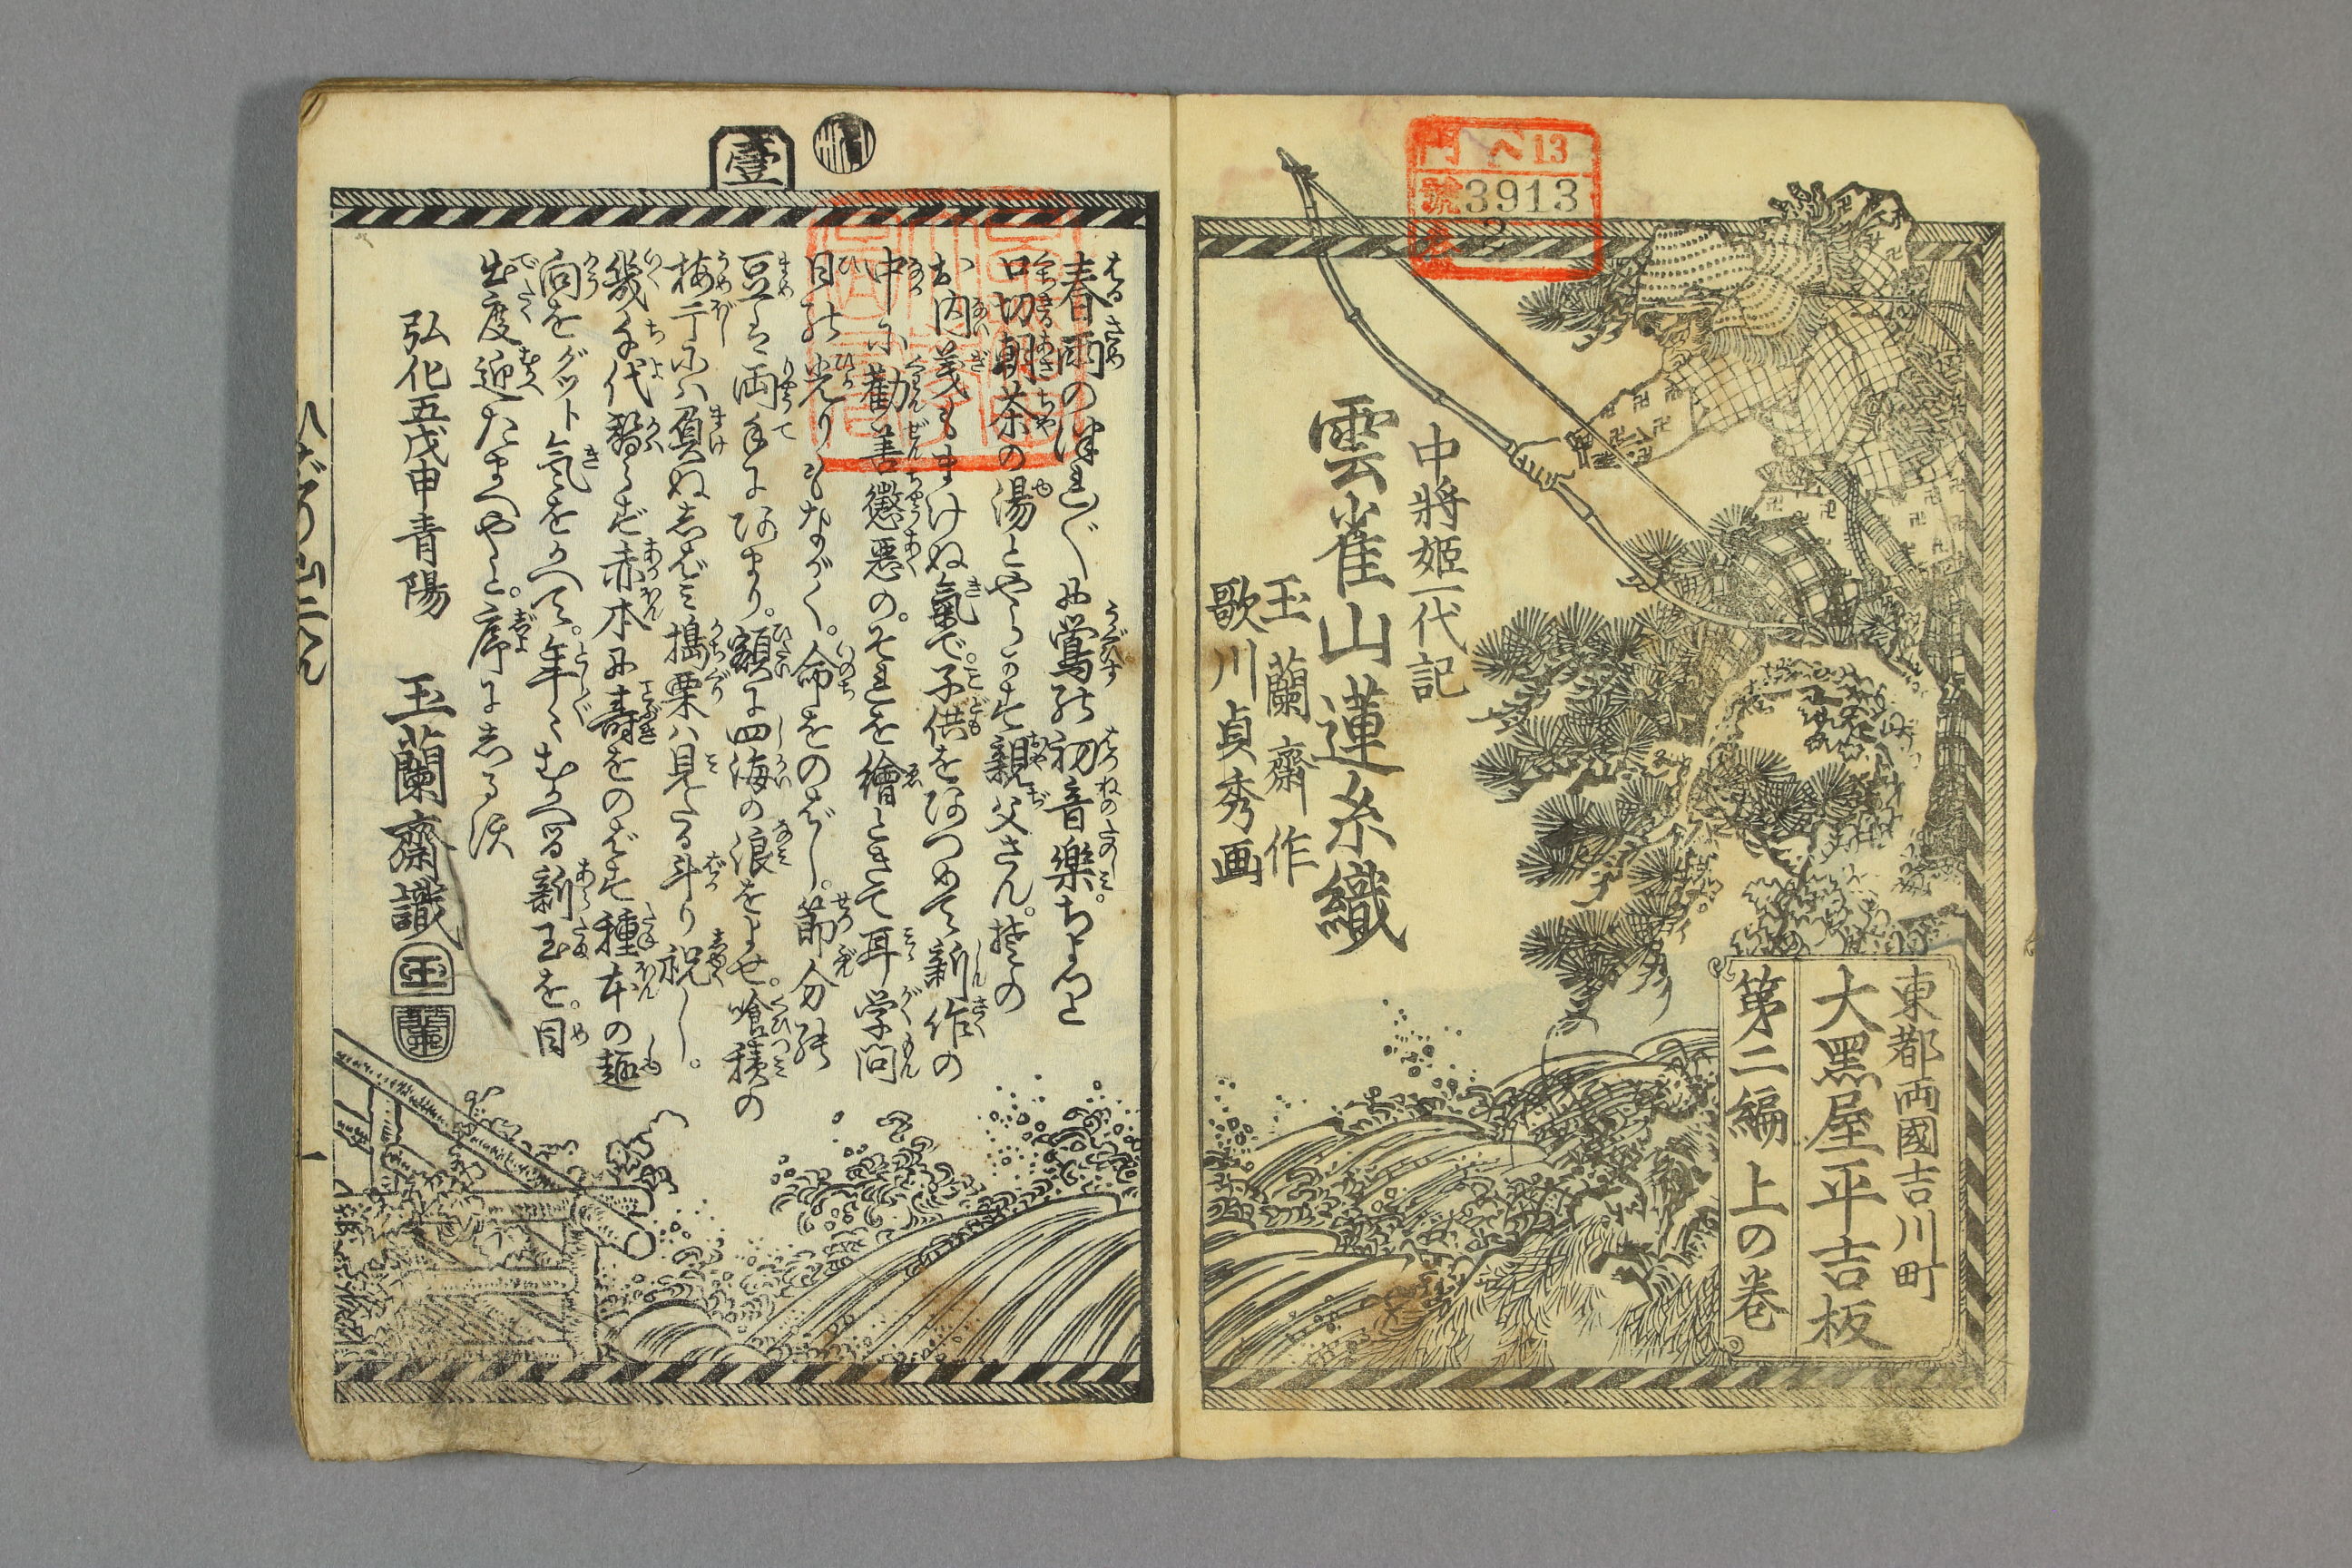 門 ヘ13
號 3913
巻 2
東都両國吉川町
大黑屋平吉板
第二編 上の巻
中將姫一代記
雲雀山蓮糸織
玉蘭齋作
歌川貞秀画
壹
春雨のつれ〴〵に鶯の初音楽。ちよつと
口切朝茶の湯とやらかす親父さん。其の
お内義もまけぬ氣で。子供をあつめて新作の
中に勧善懲悪の。それを繪ときて耳学問
日の光りもながく。命をのばし。節分の
豆も両手にあまり。額に四海の浪をよせ。喰積の
梅干には負ぬしなみ搗栗は見たる斗り祝し。
幾千代替らず赤本に壽をのばす種本の趣
向をグット氣をかへて。年〻むかへる新玉を。目
出度迎たまへやと。序にしるす
弘化五戊申青陽
玉蘭齋識
玉
蘭
一